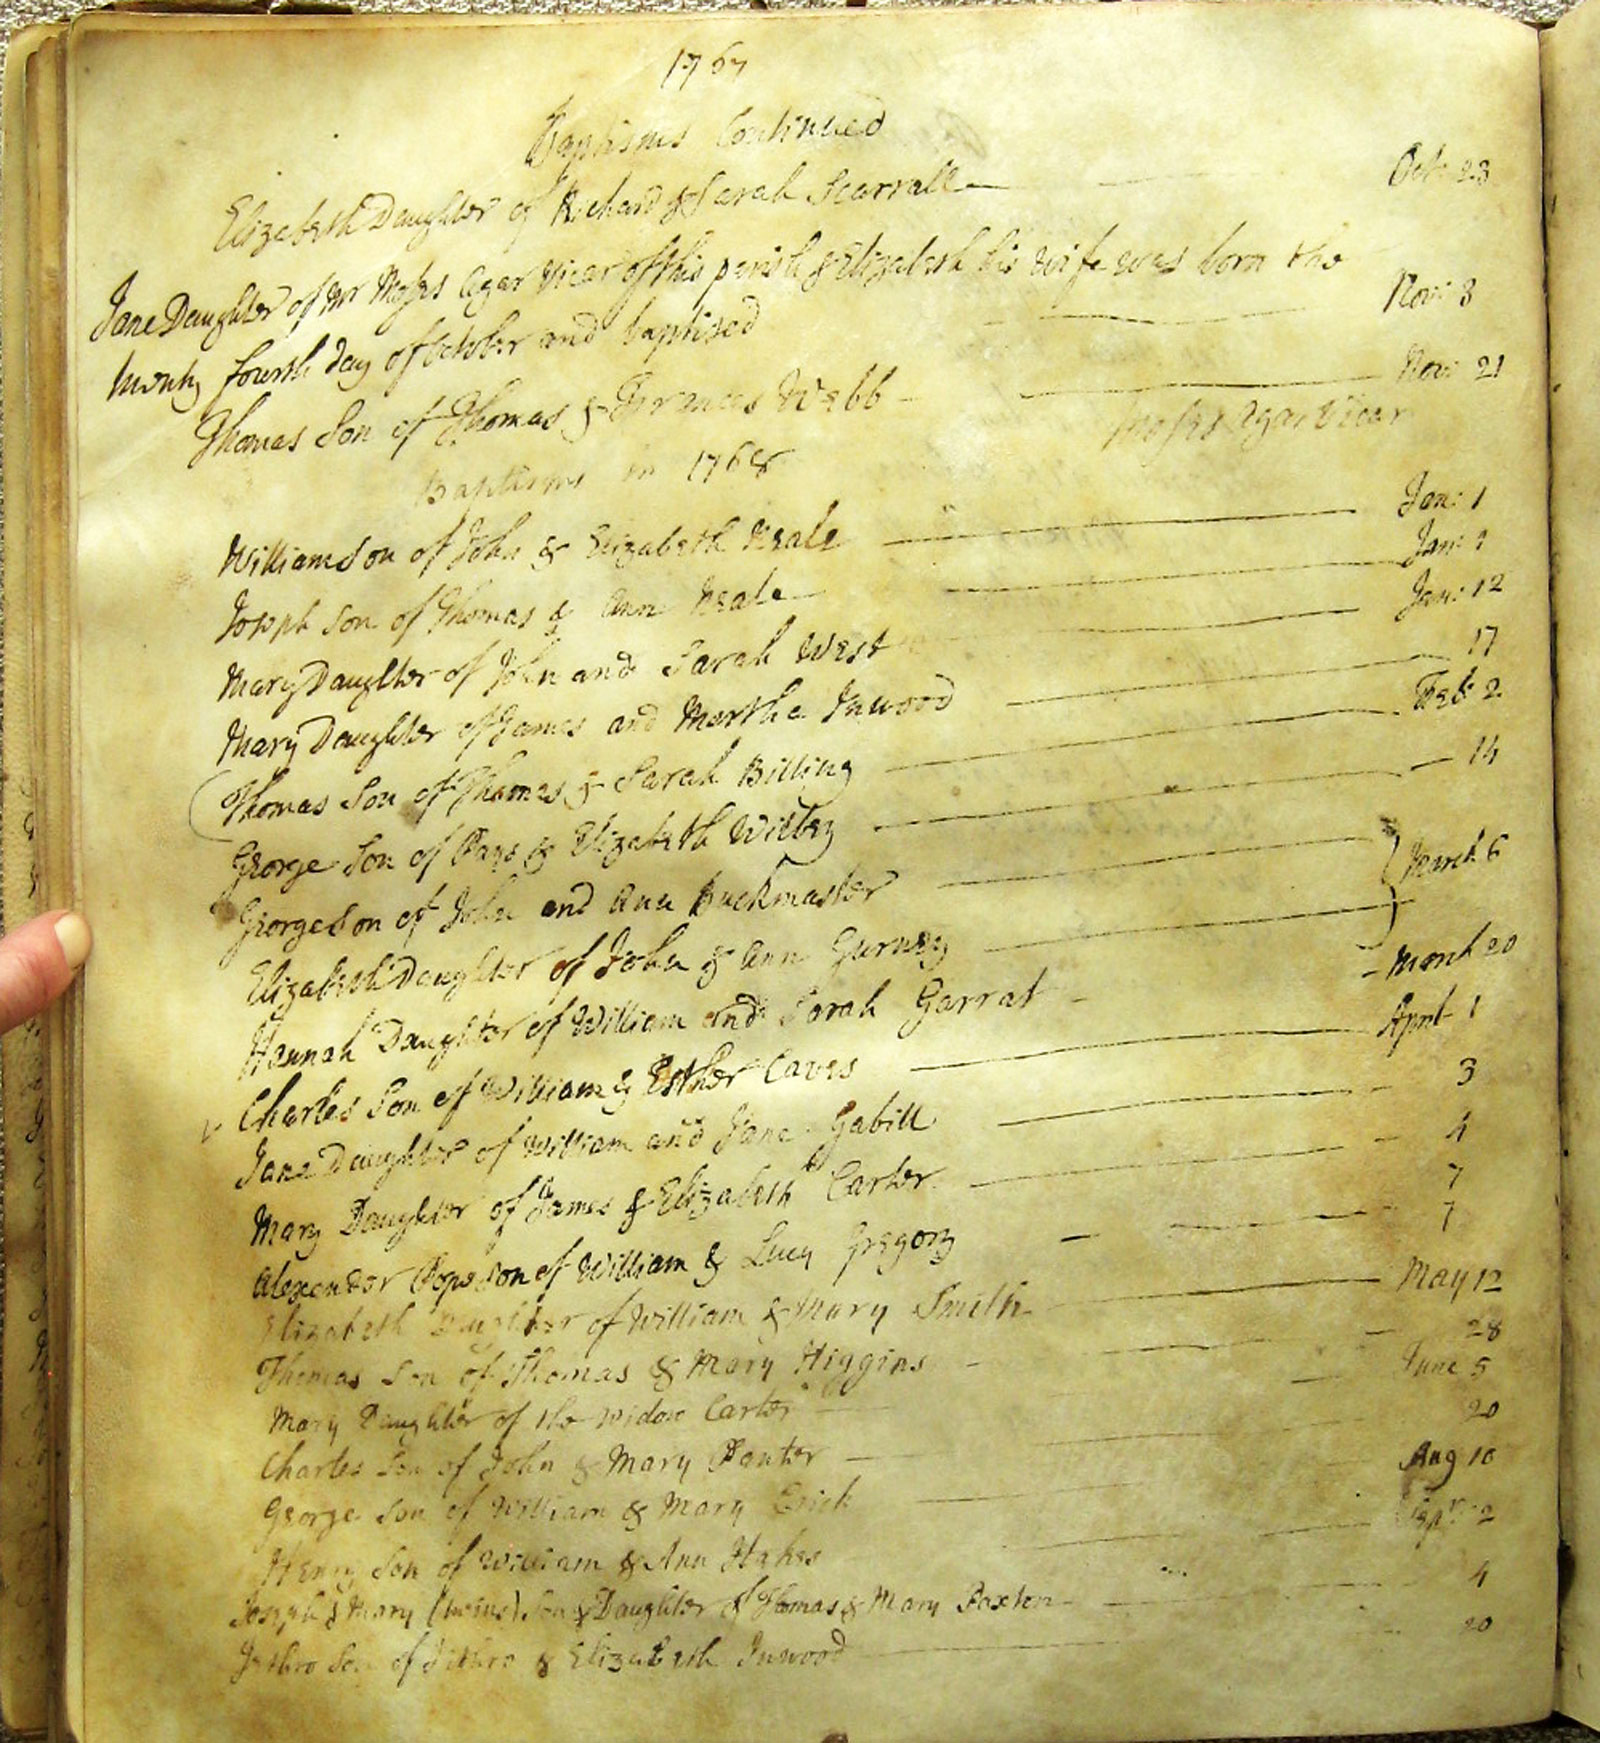 1767
Baptisms Continued
Elizabeth Daughter of Richard & Sarah Scarrall Oct: 23
Jane Daughter of Mr Moses Agar Vicar of this parish & Elizabeth his wife was born the
twenty fourth day of October and baptized Nov: 3
Thomas Son of Thomas & Frances Webb Nov: 21
Moses Agar Vicar
Baptisms in 1768
William Son of John & Elizabeth Neale Jan: 1
Joseph Son of Thomas & Ann Neale Jan:
Mary Daughter of John and Sarah West Jan: 12
Mary Daughter of James and Martha Inwood 17
Thomas Son of Thomas & Sarah Billing Feb: 2
George Son of Page & Elizabeth Willey 14
George Son of John and Ann Buckmaster March 6
Elizabeth Daughter of John & Ann Gurney
Hannah Daughter of William and Sarah Garrat March 20
Charles Son of William & Esther Caves April 1
Jane Daughter of William and Jane Gabill 3
Mary Daughter of James & Elizabeth Carter 4
Alexander Pope Son of William & Lucy Gregory 7
Elizabeth Daughter of William & Mary Smith 7
Thomas Son of Thomas & Mary Higgins May 12
Mary Daughter of the Widow Carter 28
Charles Son of John & Mary Panter June 5
George Son of William & Mary 20
Henry Son of William & Ann Hakes Aug 10
Joseph & Mary (twins) Son & Daughter of Thomas & Mary Paxton Sepr 2
Jethro Son of Jethro & Elizabeth Inwood 4
20